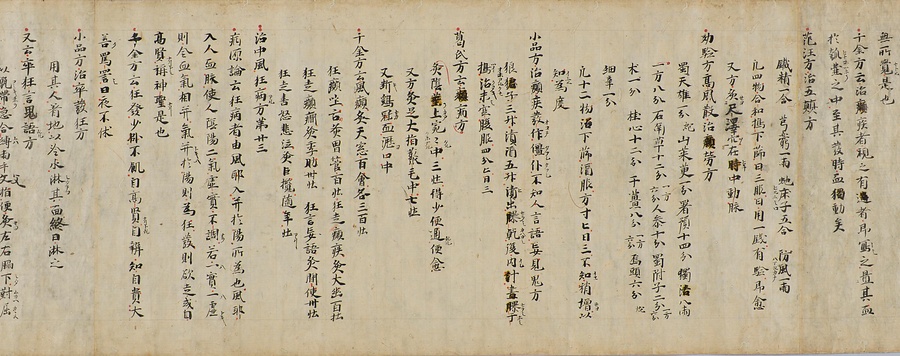 無所覺是也
千金方云治癲疾者視之有過者即寫之置其血
於瓠壺之中至其發時血獨動矣
范汪方治五癲方
鐵精一合 芎藭一兩 虵床子五合 防風一兩
凡四物合和搗下篩日三服日用一錢有驗即愈
又方灸尺澤穴在肘中動脉
効驗方高風散治癲方
蜀天雄一分 炮 山茱萸一分 署預十四分 獨活八兩
一方八分石南草十二分 六分 人參十分 蜀附子二分 一方
朮一分 桂心十二分 干薑八分 一方六分 烏頭六分 炮
細辛一分
凡十二物治下篩酒服方寸匕日三不知稍增以
知為度
小品方治癲疾發作僵仆不知人言語妄見鬼方
狼子三升漬酒五升漬出曝乾復内汁盡曝干
搗治末服四分匕日三
葛氏方云癲病方
灸陰莖上宛宛中三壯得小便通便愈
又方灸足大指聚毛中七壯
又斬鷄冠血瀝口中
千金方云風癲灸天窓百會各三百壯
狂癲灸胃管百壯狂走癲疾灸大幽百壯
狂走癲癇灸季肋卅壯 狂言妄語灸間使卅壯
狂走喜怒悲泣灸巨攬隨年壯
治中風狂病方第廿三
病源論云狂病者由風邪入并於陽所為也風邪
入人血脉使人陰陽二氣虛實不調若一實一虛
則令血氣相并氣并於陽則為狂發則欲走或自
高賢稱神聖是也
千金方云狂發少臥不飢自高賢自辨知自貴大
善罵詈日夜不休
小品方治卒發狂方
用其人着地以冷水淋其面終日淋之
又云卒狂言鬼語方
以甑帶急合縛兩手父指便灸左右脇下對屈